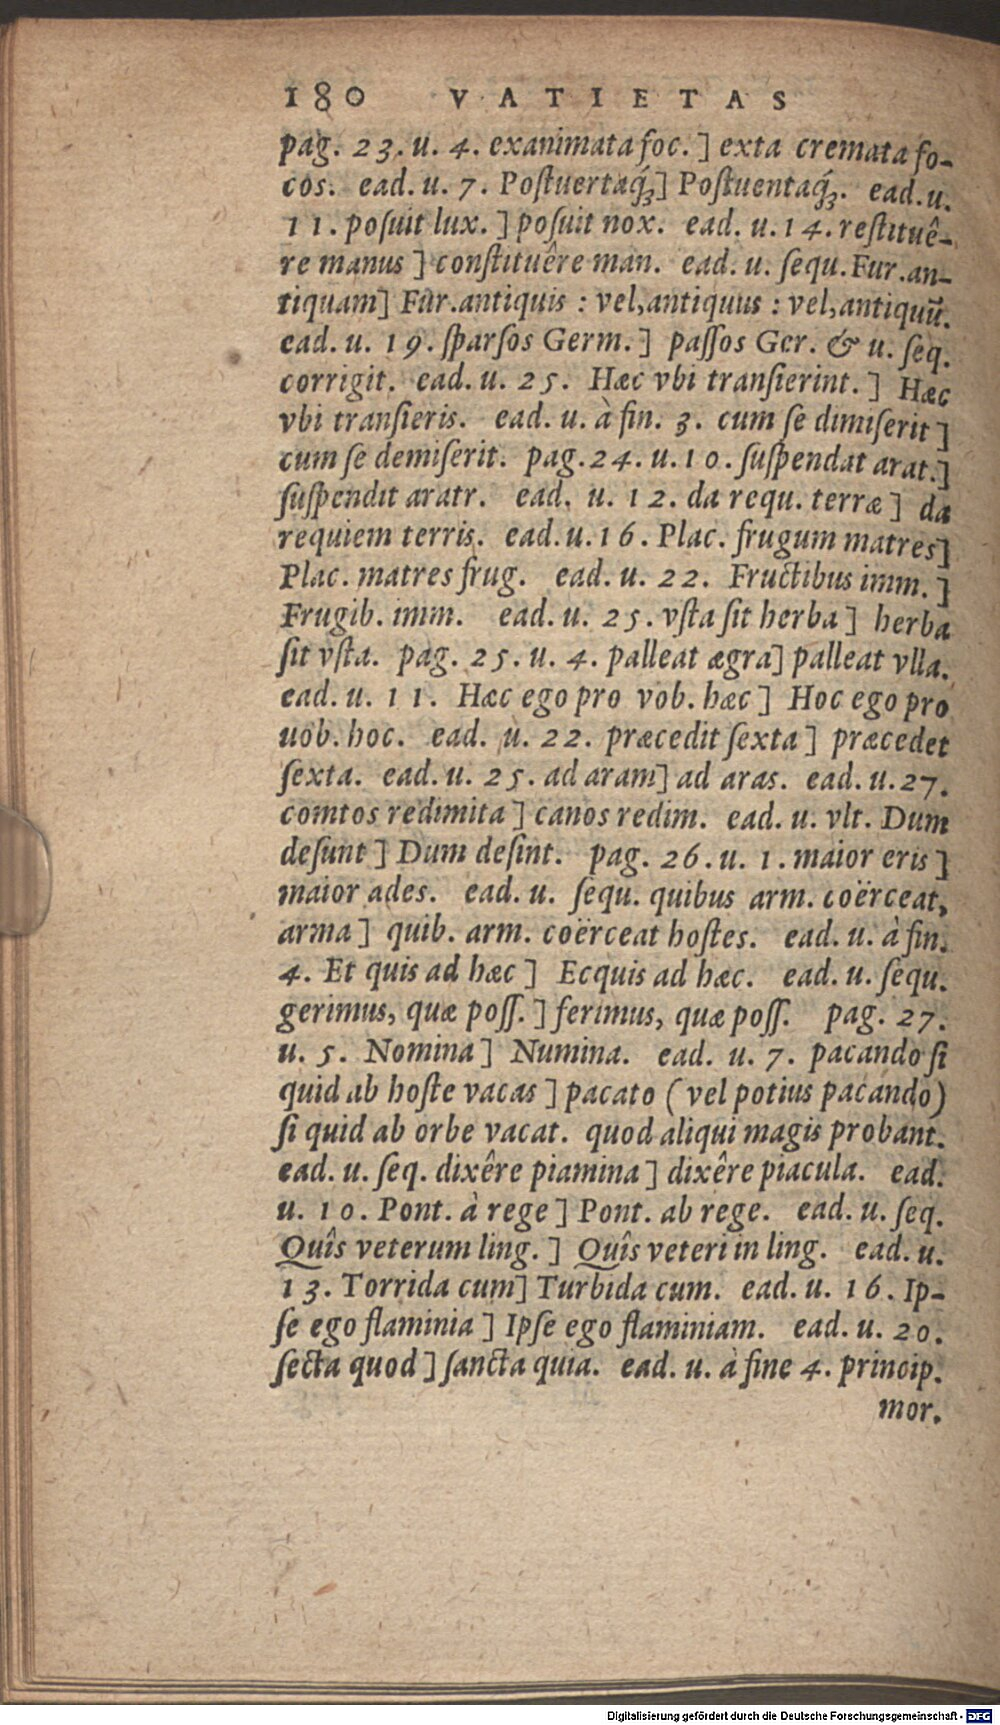 180 VATIETAS
pag. 23. u. 4. exanimata foc. ] exta cremata fo-
cos. ead. u. 7. Poſtuertaq́ꝫ] Poſtuentaq́ꝫ. ead. u.
11. poſuit lux. ] poſuit nox. ead. u. 14. reſtituê-
re manus ] conſtituêre man. ead. u. ſequ. Fur. an-
tiquam] Fur. antiquis : vel, antiquus : vel, antiquū.
ead. u. 19. ſparſos Germ. ] paſſos Ger. & u. ſeq.
corrigit. ead. u. 25. Hæc vbi tranſierint. ] Hæc
vbi tranſieris. ead. u. à fin. 3. cum ſe dimiſerit ]
cum ſe demiſerit. pag. 24. u. 10. ſuſpendat arat.]
ſuſpendit aratr. ead. u. 12. da requ. terræ ] da
requiem terris. ead. u. 16. Plac. frugum matres]
Plac. matres frug. ead. u. 22. Fructibus imm. ]
Frugib. imm. ead. u. 25. vſta ſit herba ] herba
ſit vſta. pag. 25. u. 4. palleat ægra] palleat vlla.
ead. u. 11. Hæc ego pro vob. hæc ] Hoc ego pro
uob. hoc. ead. u. 22. præcedit ſexta ] præcedet
ſexta. ead. u. 25. ad aram] ad aras. ead. u. 27.
comtos redimita ] canos redim. ead. u. vlt. Dum
deſunt ] Dum deſint. pag. 26. u. 1. maior eris ]
maior ades. ead. u. ſequ. quibus arm. coërceat,
arma ] quib. arm. coërceat hoſtes. ead. u. à fin.
4. Et quis ad hæc ] Ecquis ad hæc. ead. u. ſequ.
gerimus, quæ poſſ. ] ferimus, quæ poſſ. pag. 27.
u. 5. Nomina ] Numina. ead. u. 7. pacando ſi
quid ab hoſte vacas ] pacato ( vel potius pacando)
ſi quid ab orbe vacat. quod aliqui magis probant.
ead. u. ſeq. dixêre piamina ] dixêre piacula. ead.
u. 10. Pont. à rege ] Pont. ab rege. ead. u. ſeq.
Quîs veterum ling. ] Quîs veteri in ling. ead. u.
13. Torrida cum] Turbida cum. ead. u. 16. Ip-
ſe ego flaminia ] Ipſe ego flaminiam. ead. u. 20.
ſecta quod ] ſancta quia. ead. u. à fine 4. princip.
mor.
Digitalisierung gefördert durch die Deutsche Forschungsgemeinschaft - DFG